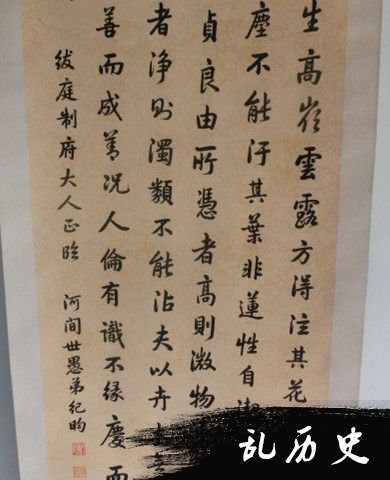 生高嶺雲露方得注其花
塵不能汙其葉非蓮性自
貞良由所憑者高則微物
者淨則濁類不能沾夫以卉
善而成善況人倫有識不緣慶而
紱庭制府大人正臨
河間世愚弟紀昀
乱历史